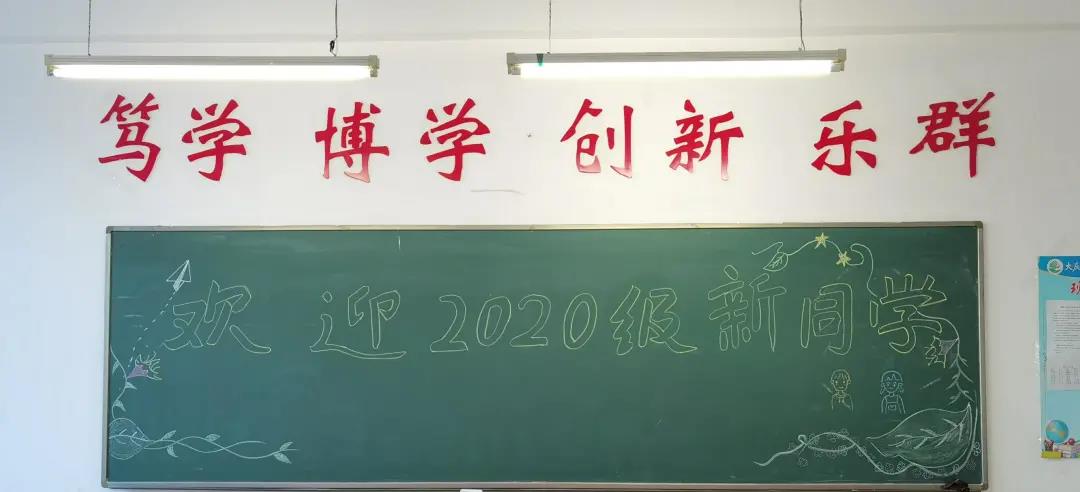 笃学 博学 创新 乐群
欢迎2020级新同学
大庆